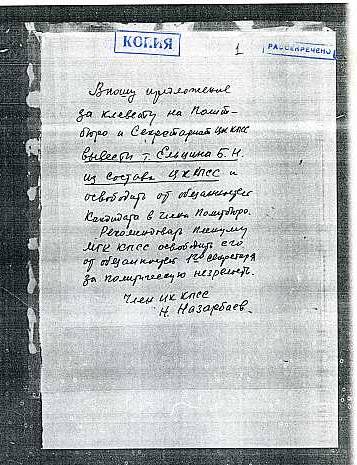 КОПИЯ
1
РАССЕКРЕЧЕНО
Вношу предложение
за клевету на Полит-
бюро и Секретариат ЦК КПСС
вывести т. Ельцина Б. Н.
из состава ЦК КПСС и
освободить от обязанностей
Кандидата в члены Политбюро.
Рекомендовать пленуму
МГК КПСС освободить его
от обязанностей 1го секретаря
за политическую незрелость.
Член ЦК КПСС
Н. Назарбаев.